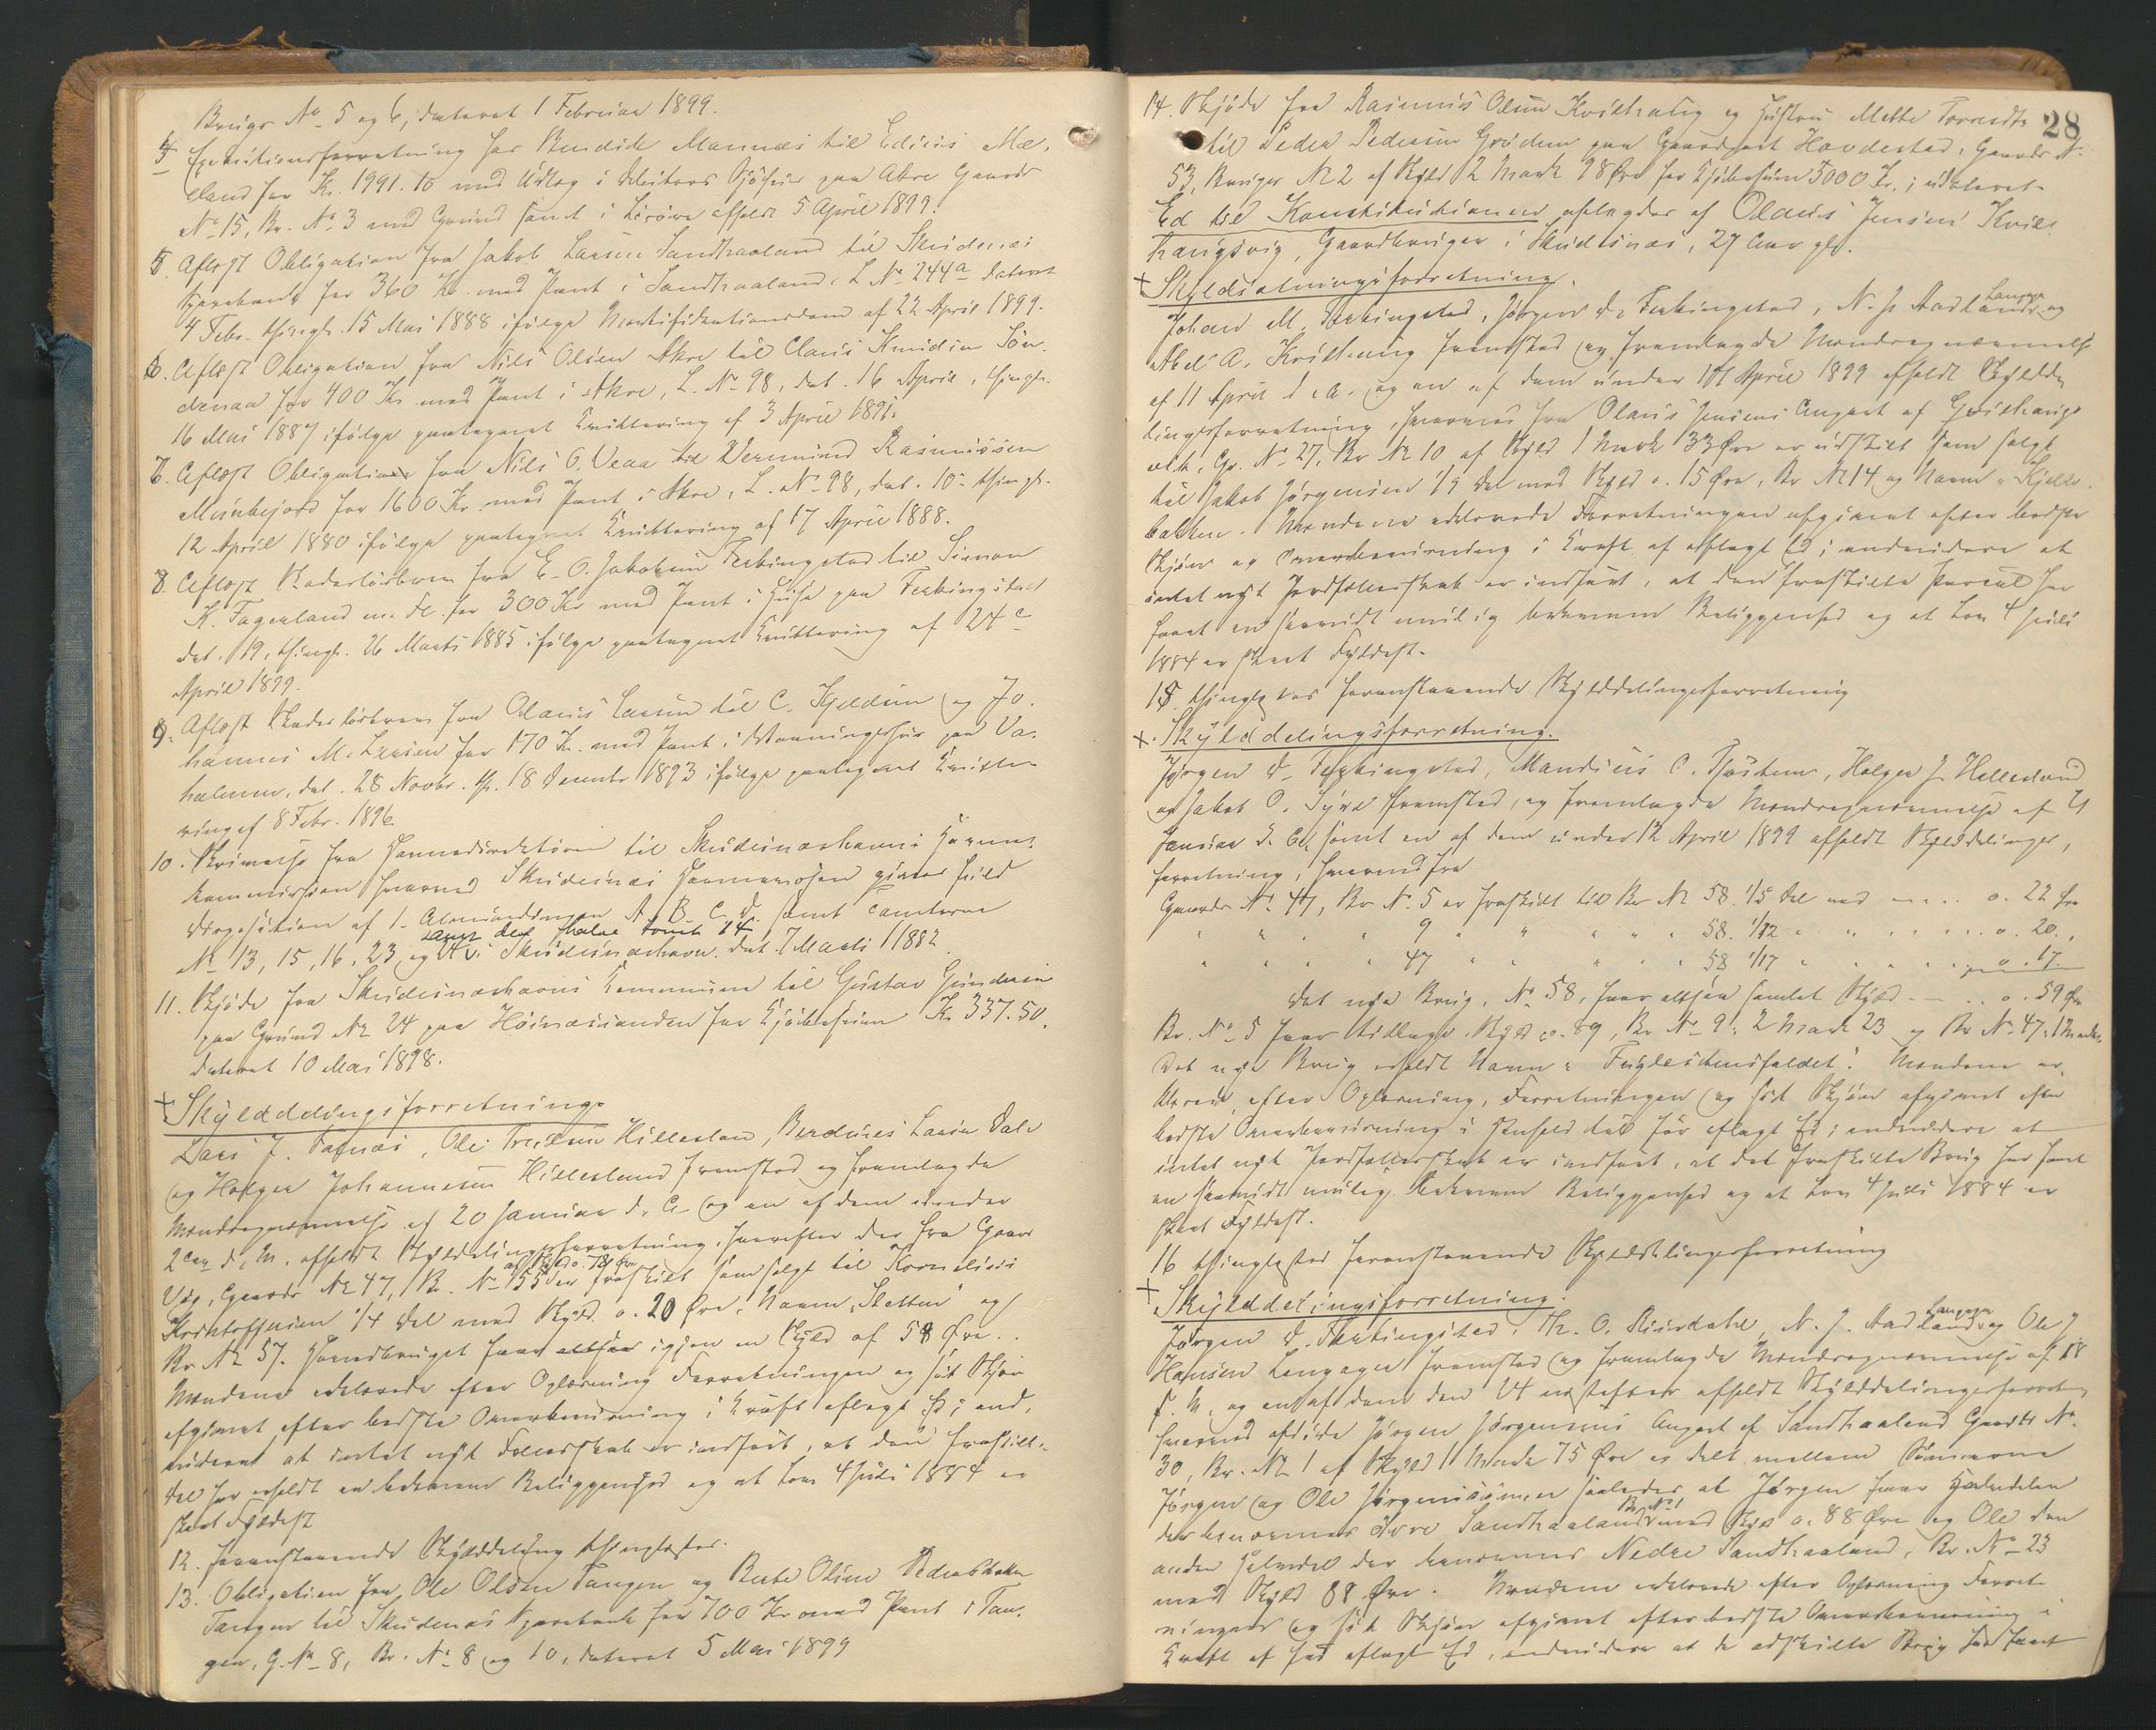 Brugs No 5 og 6, dateret 1 Februar 1899.
4 Executionsforretning for Bendik Mannes til Edvis Mæ-
land for Kr. 1991.10 med Udlæg i Debitors Sjøhus paa Akre Gaards
No 15, Br. No 3 med Grund samt i Løsøre afholdt 5 April 1899.
5. Aflyst Obligation fra Jakob Larsen Sandhaaland til Skudenæs
Sparebank for 360 Kr. med Pant i Sandhaaland, L No 244a dateret
4 Febr. thingl. 15 Mai 1888 ifølge Mortifikationsdom af 22 April 1899.
6. Aflyst Obligation fra Nils Olsen Akre til Claus Knudsen Søn-
denaa for 400 Kr. med Pant i Akre, L. No 98, dat. 16 April, thingl.
16 Mai 1887 ifølge paategnet Kvittering af 3 April 1891.
7. Aflyst Obligation fra Nils O. Veaa til Vermund Rasmussen
Munkejord for 1600 Kr. med Pant i Akre, L. No 98, dat. 10 thingl.
12 April 1880 ifølge paategnet Kvittering af 17 April 1888.
8. Aflyst Skadesløsbrev fra E. O. Jakobsen Ferkingstad til Simon
K. Fagerland m. Fl. for 300 Kr. med Pant i Huse paa Ferkingstad
dat. 19, thingl. 26 Marts 1885 ifølge paategnet Kvittering af 24de
April 1899.
9. Aflyst Skadesløsbrev fra Olaus Larsen til C. Kjeldsen og Jo-
hannes M. Larsen for 170 Kr. med Pant i Vaaningshus paa Va-
holmen, dat. 28 Novbr. th. 18 Decembr 1893 ifølge paategnet Kvitte-
ring af 8 Febr. 1896.
10. Skrivelse fra Havnedirektøren til Skudesnæshavns Havne-
kommission hvorved Skudesnæs Havnevæsen gives fuld
Disposition af 1. Almindingen A. B. C. D. samt Tomterne
No 13, 15, 16, 23, og samt den halve Tomt 14 i Skudesnæshavn. dat. 7 Marts 1882
11. Skjøde fra Skudesnæshavns Kommune til Gustav Gundersen
paa Grund No 24 paa Høinæsanden for Kjøbesum Kr. 337.50.
dateret 10 Mai 1898.
+ Skylddelingsforretning.
Lars J. Falnæs, Ole Hillesland, Berdines Larsen Dale
og Holger Johannesen Hillesland fremstod og fremlagde
Mændsopnævnelse af 20 Januar d. A. og en af dem under
2den d. M. afholdt Skylddelingsforretning, hvorefter der fra Gaard
Vik, Gaards No 47, Br. No 15 af Skyld o. 78 Øre er fraskilt som solgt til Kornelius
Kristoffersen 1/4 Del med Skyld o. 20 Øre, Navn "Sletten" og
Br No 57. Hovedbruget har altsaa igjen en Skyld af 58 Øre.
Mændene edelovede efter Oplæsning Forretningen og sit Skjøn
afgivet efter bedste Overbevisning i Kraft aflagt Ed; end-
videre at intet nyt Fællesskab er indført, at den fraskilte
Del har erholdt en bekvem Beliggenhed og at Lov 4 Juli 1884 er
skeet Fyldest
12. foranstaaende Skylddeling thinglæstes.
13. Obligation fra Ole Olsen Tangen og Berte Olsen
Tangen til Skudenæs Sparebank for 700 Kr. med Pant i Tan-
gen, G. No 8, Br. No 8 og 10, dateret 5 Mai 1899
28
14. Skjøde fra Rasmus Olsen Kvilhaug og Hustru Mette
til Peder Pedersen Grødem paa Gaardpart Hovdestad, Gaards No
53, Bruges No 2 af Skyld 2 Mark 98 Øre for Kjøbesum 5000 Kr.; udateret.
Ed til Konstitutionen aflagdes af Olaus Jensen Kvil-
haugsvig, Gaardbruger i Skudenæs, 27 Aar gl.
+ Skyldsetningsforretning.
Johan M. Ferkingstad, Jørgen D. Ferkingstad, N. J. Aadland Langager og
Abel A. Kvilhaug fremstod og fremlagde Mændsopnævnelse
af 11 April d. A. og en af dem under 18 April 1899 afholdt Skylddel-
lingsforretning, hvorved fra Olaus Jensens Anpart af Kvilhaugs-
vik, Gr. No 27, Br No 10 af Skyld 1 Mark 33 Øre er udskilt som solgt
til Jakob Jørgensen 1/9 Del med Skyld o. 15 Øre, Br No 14 og Navn "Kjelde-
bakken". Mændene edelovede Forretningen afgivet efter bedste
Skjøn og Overbevisning i Kraft af aflagt Ed; endvidere at
intet nyt Jordfællesskab er indført, at den fraskilte Parcel har
faaet en saavidt mulig bekvem Beliggenhed og at Lov 4 Juli
1884 er skeet Fyldest.
15. thinglystes foranstaaende Skylddelingsforretning
+ Skylddelingsforretning.
Jørgen D. Ferkingstad, Mandius C. Tjøstem, Holger J. Hillesland
og Jakob O. Syre fremstod, og fremlagde Mændsopnævnelse af 21
Januar d. A. samt en af dem under 12 April 1899 afholdt Skylddelings-
forretning, hvorved fra
Gaards No 47, Br No 5 er fraskilt til Br No 58 1/5 Del med .... o. 22 Øre
" " " " 9 " " " " " 58. 1/12 " " .... o. 20. "
" " " " 47 " " " " " 58 1/17 " " .... o. 17.
Det nye Brug, No 58, faar altsaa samlet Skyld .... o. 59 Øre
Br. No 5 faar tilbage Skyld o. 89, Br No 9: 2 Mark 23 og Br No 47: 1 Mark
Det nye Brug erholdt Navn "Fuglestensfaldet". Mændene er-
klærede, efter Oplæsning, Forretningen og sit Skjøn afgivet efter
bedste Overbevisning i Henhold til før aflagt Ed; endvidere at
intet nyt Jordfællesskab er indført, at det fraskilte Brug har faaet
en saavidt mulig bekvem Beliggenhed og at Lov 4 Juli 1884 er
skeet Fyldest.
16 thinglæstes foranstaaende Skylddelingsforretning
+ Skylddelingsforretning.
Jørgen D. Ferkingstad, Th. O. Risdahl, N. J. Aadland Langager og Ole J
Hansen Langager fremstod og fremlagde Mændsopnævnelse af 18
f. M. og en af dem den 24 næstefter afholdt Skylddelingsforretn.
hvorved afdøde Jørgen Jørgensens Anpart af Sandhaaland Gaards No.
30, Br. No 1 af Skyld 1 Mark 75 Øre er delt mellem Sønnerne
Jørgen og Ole Jørgenssønner saaledes at Jørgen faar Halvdelen
der benævnes Øvre Sandhaaland Br. No 1 med Skyld o. 88 Øre og Ole den
anden Halvdel der benævnes Nedre Sandhaaland, Br. No 23
med Skyld 88 Øre. Mændene edelovede efter Oplæsning Forret-
ningen og sit Skjøn afgivet efter bedste Overbevisning i
Kraft af før aflagt Ed, endvidere at de adskilte Brug har faaet